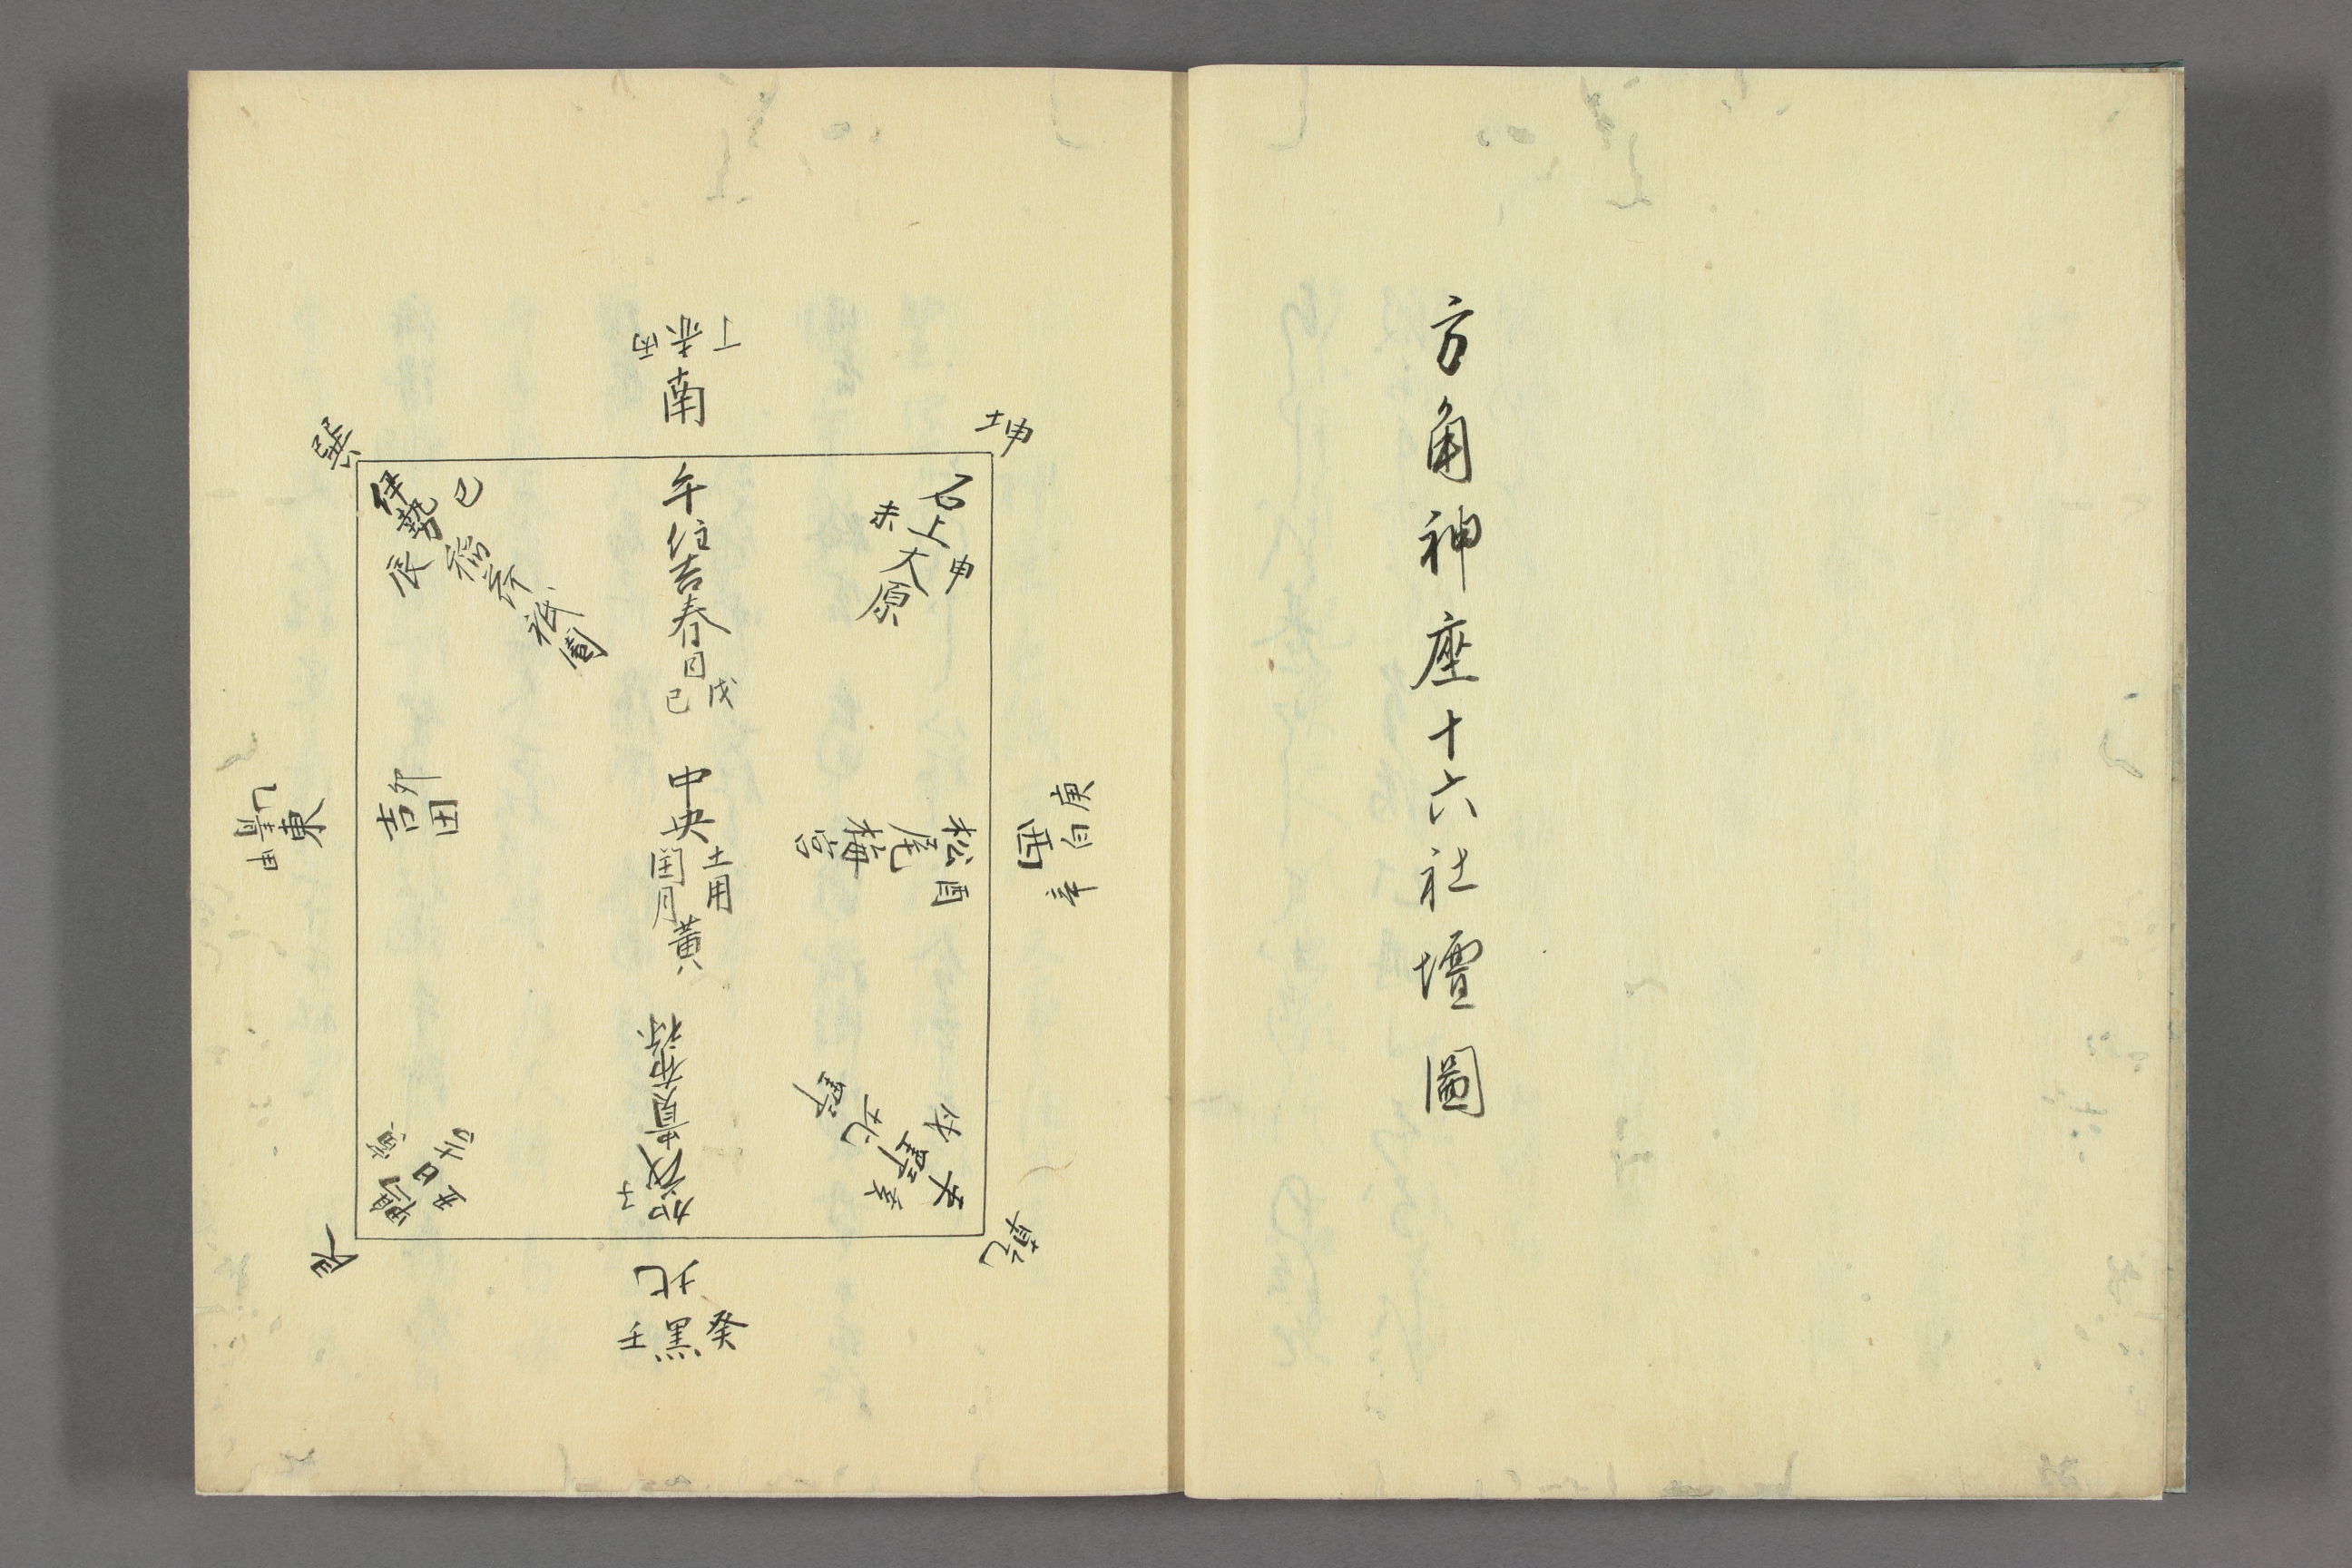 方角神座十六社壇圖
丁 赤 丙
南
坤
巽
午
住吉
春日
戊 己
石上
大原
未 申
伊勢
稲荷
祇園
巳 辰
庚 白 辛
西
酉
松尾
梅宮
中央
土用
閏月
黄
卯
吉田
東
乙 青 甲
平野
北野
乾
子
賀茂
貴布祢
日吉
艮
北
癸 黒 壬